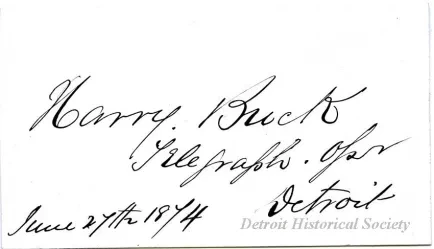 Harry. Buck
Telegraph. Opr
Detroit
June 27th 1874
Detroit Historical Society